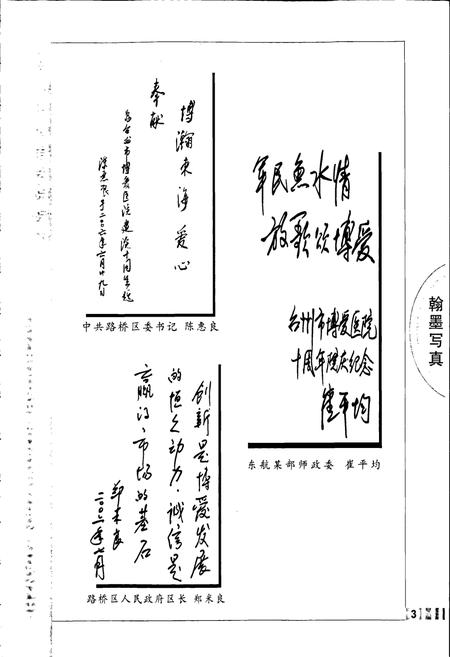 博瀚東海愛心
奉献
为台州市博爱医院建院十周年题
陈惠良于二〇〇六年六月廿九日
中共路桥区委书记 陈惠良
军民鱼水情
放歌颂博爱
台州市博爱医院
十周年院庆纪念
崔平均
东航某部师政委 崔平均
创新是博愛发展
的恒久动力，诚信是
赢得市场的基石
郑米良
二〇〇六年七月
路桥区人民政府区长 郑米良
翰墨写真
3